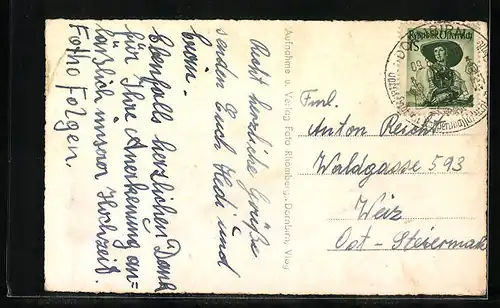 Recht herzliche Grüße
senden Euch Hedi und
Erwin.
Ebenfalls herzlichen Dank
für Ihre Anerkennung an-
läßlich unserer Hochzeit.
Foto Folgen
Aufnahme u. Verlag Foto Rhomberg, Dornbirn, Vlbg
Faml.
Anton Reicht
Waldgasse 593
Weiz
Ost-Steiermark
REPUBLIK ÖSTERREICH
1S
DORNBIRN